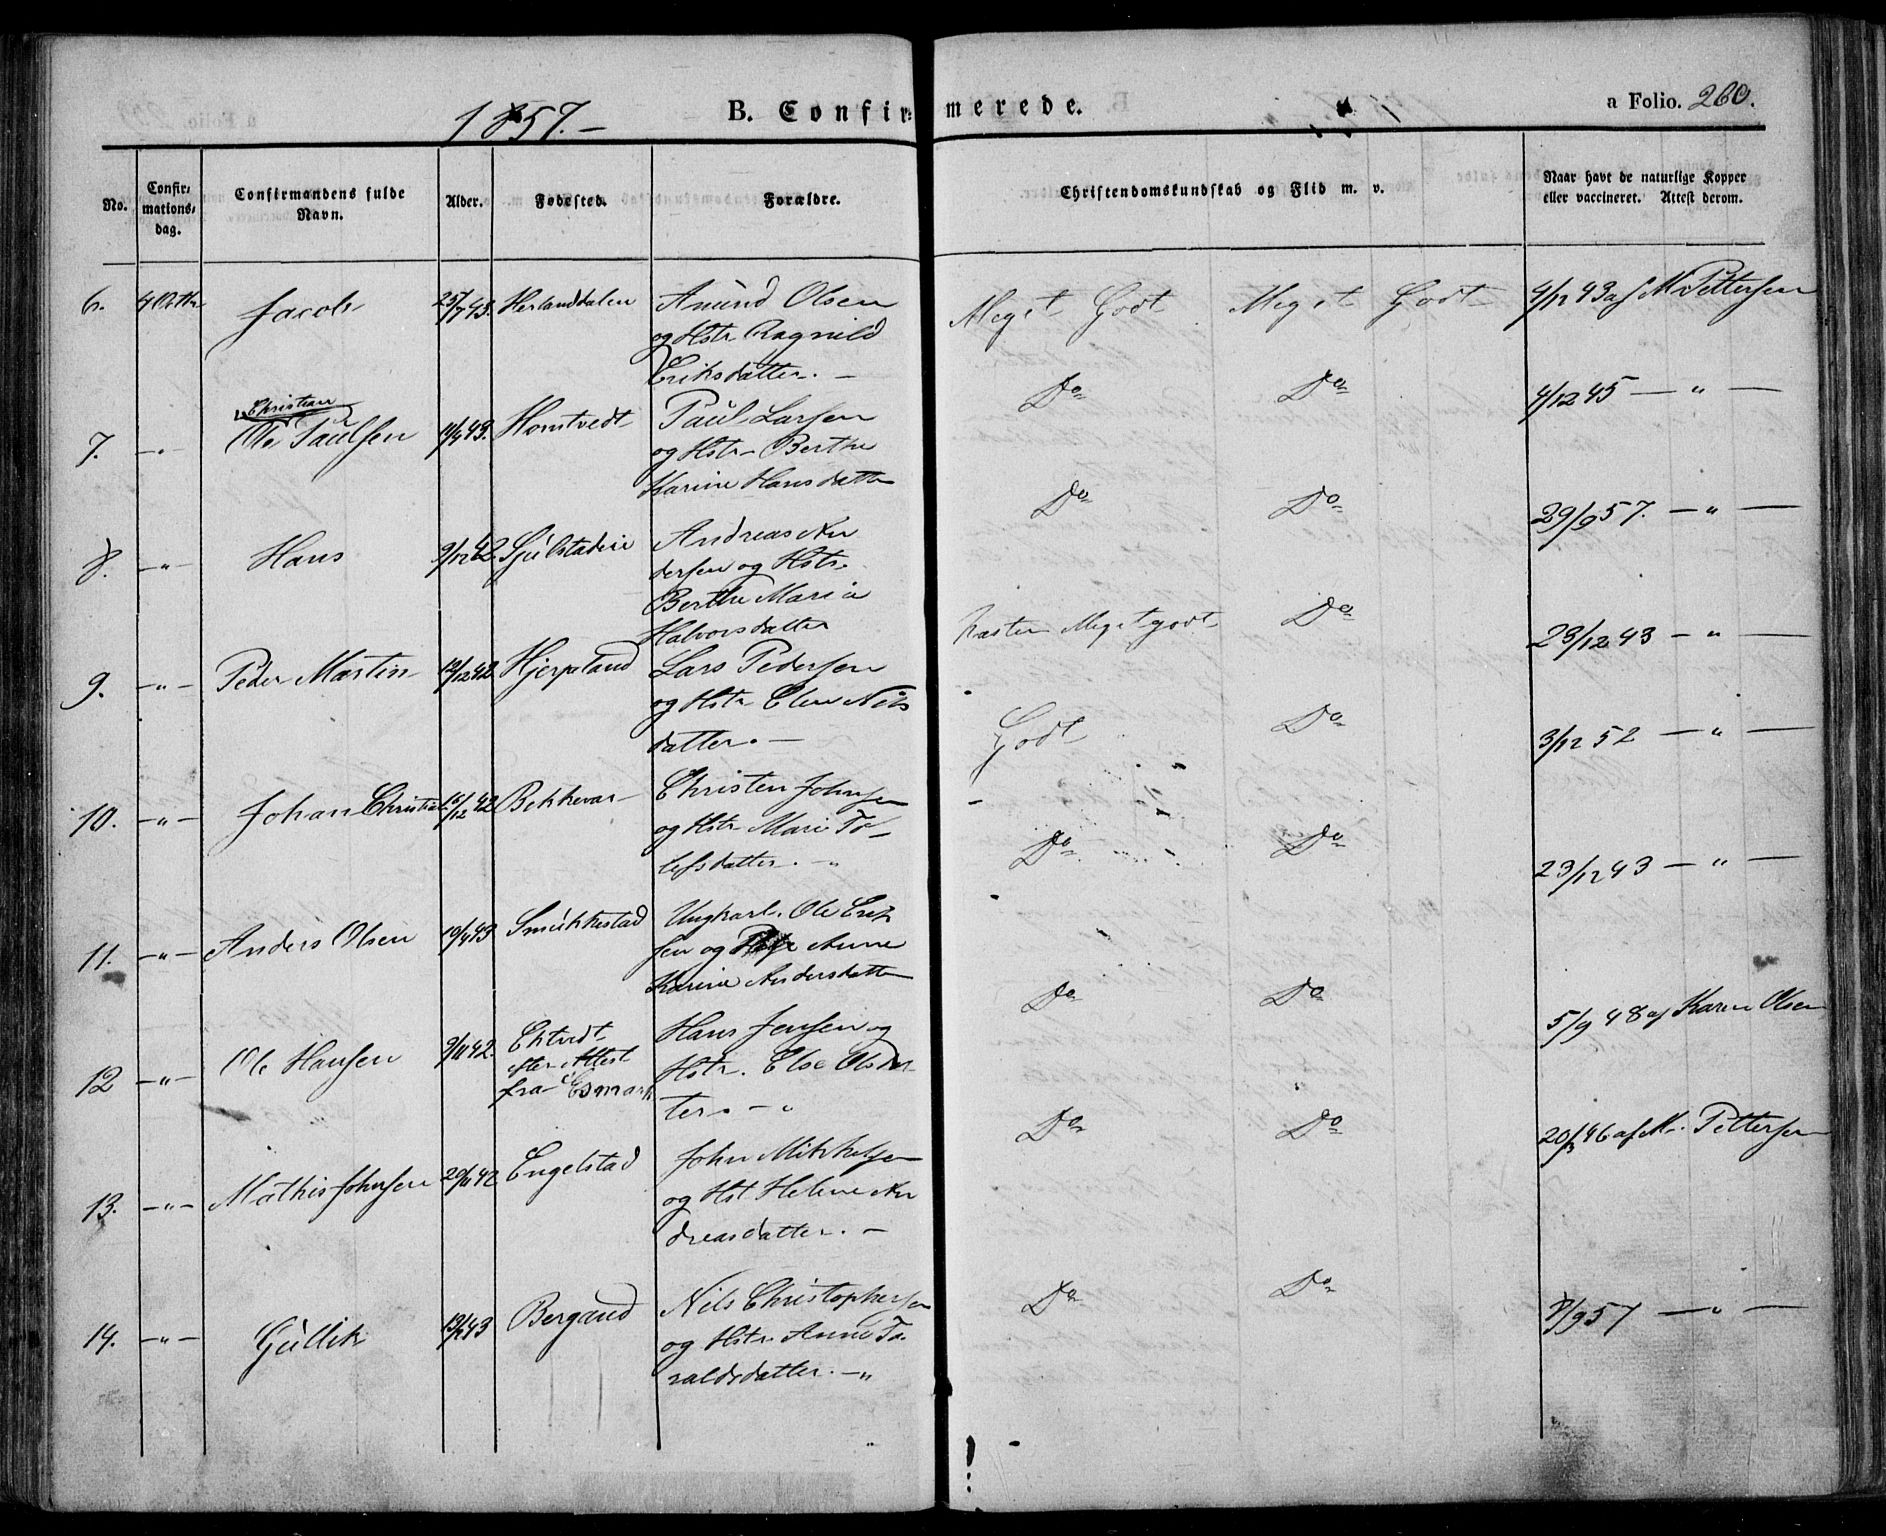 1857. –
B. Confirmerede.
a Folio. 260.
No.
Confirmations-dag.
Confirmandens fulde Navn.
Alder.
Fødested.
Forældre.
Christendomskundskab og Flid m. v.
Naar havt de naturlige Kopper eller vaccineret. Attest derom.
6. 4 Octbr Jacob 25/7 43. Herlanddalen Amund Olsen
og Hstr Ragnild
Eriksdatter. –
Meget Godt Meget Godt 4/12 43 af M Pettersen
Christian
7. – " – Ole Paulsen 11/4 43. Homtvedt Paul Larsen
og Hstr Berthe
Karine Hansdatter
Do Do 4/12 45 — " —
8. – " – Hans 9/12 42 Sjulstadeie Andreas An
dersen og Hstr.
Berthe Maria
Halvorsdatter
Do Do 29/9 57. – " —
9. – " – Peder Martin 12/12 42 Hjerpland Lars Pedersen
og Hstr Elen Nils
datter. –
Næsten Meget godt Do 23/12 43 – " —
10. – " – Johan Christian 16/12 42 Bekkevar Christen Johnsen
og Hstr Marie To-
lefsdatter. – "
Godt Do 3/12 52 — " —
11. – " – Anders Olsen 19/4 43 Smukkestad Ungkarl. Ole Erik
sen og Pige Anne
Karine Andersdatter
Do Do 23/12 43 – " —
12 – " – Ole Hansen 9/11 42. Ektvedt
efter Attest
fra Esmark
Hans Jensen og
Hstr. Else Olsdat-
ter. – "
Do Do 5/9 48 af Karen Olsen
13. – " – Mathis Johnsen 29/11 42 Engelstad John Mikkelsen
og Hst Helene An
dreasdatter. –
Do Do 20/3 46 af M. Pettersen
14. – " – Gullik 13/2 43 Bergand Nils Christophersen
og Hstr. Anne To-
raldsdatter. – "
Do Do 8/9 57 — " —